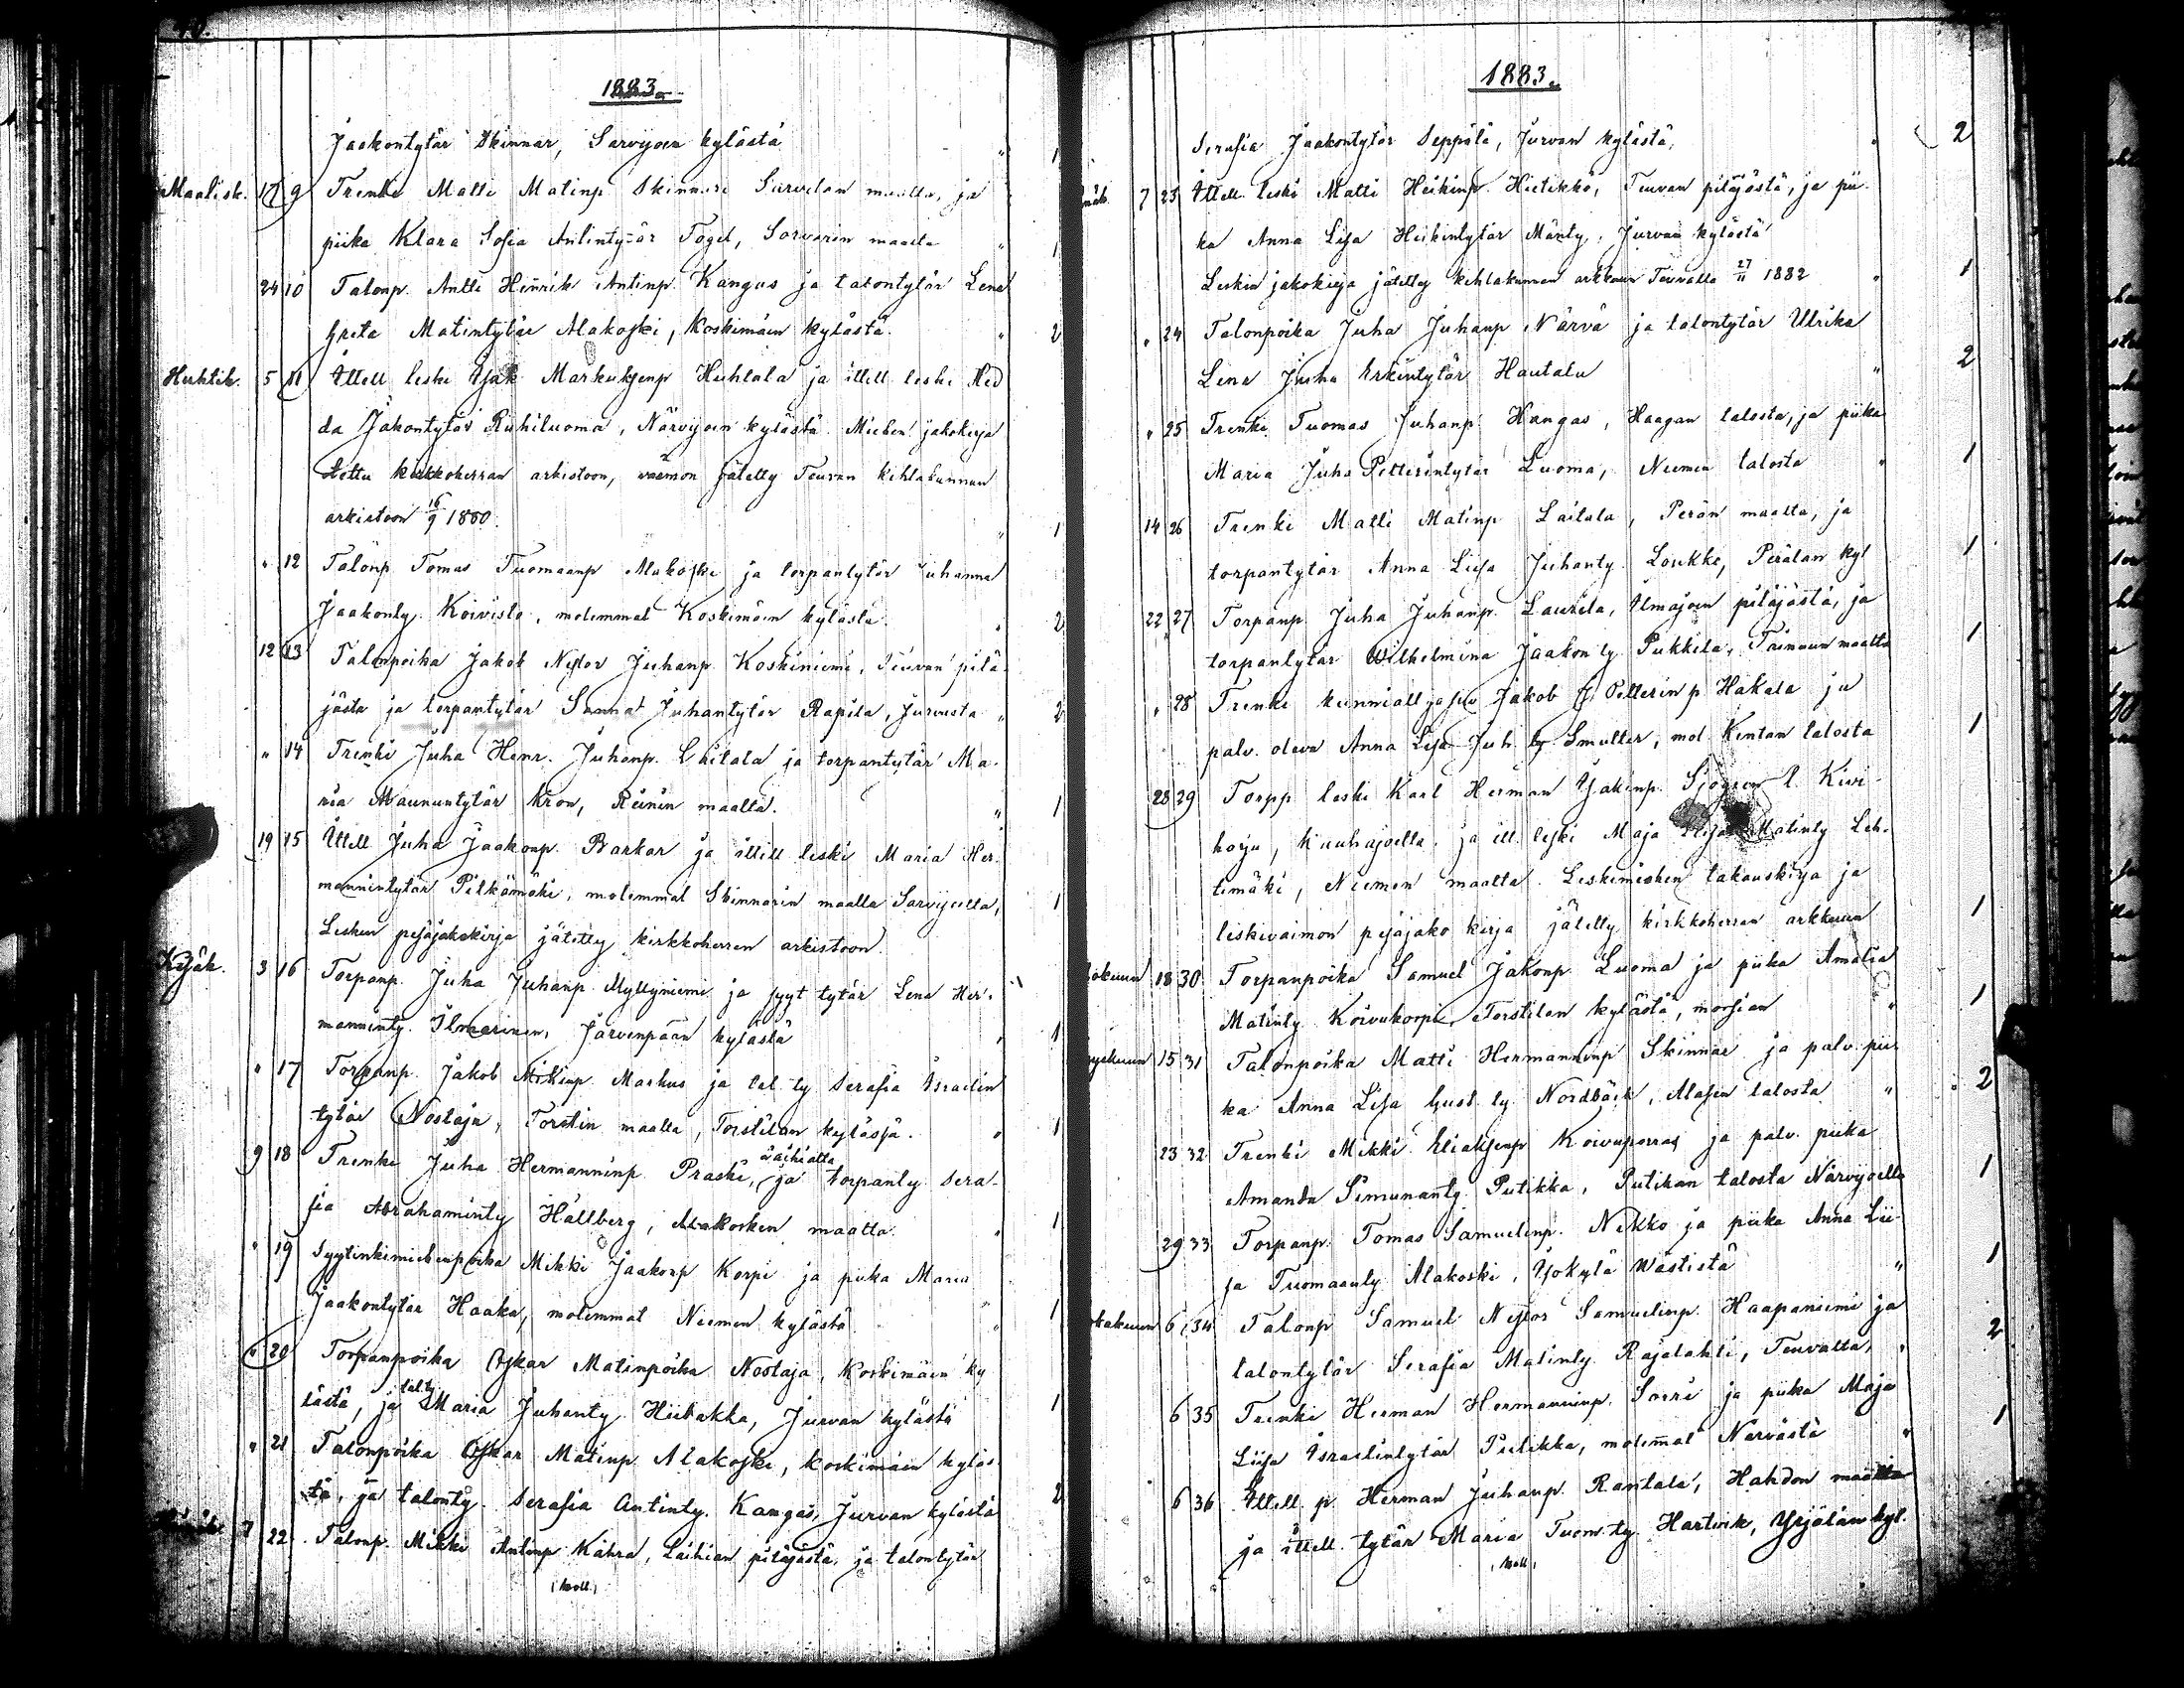 1883.
Jaakontytär Skinnar, Sarvijoen kylästä " 1
Maalisk. 17 9 Trenki Matti Matinp Skinnari Sarvelan maalta, ja
piika Klara Sofia Antintytär Fogel, Sorvarin maalta " 1
24 10 Talonp. Antti Hinrik Antinp. Kangas ja talontytär Lena
Greta Matintytär Alakoski, Koskimäen kylästä. " 2
Huhtik. 5 11 Ittell. leski Isak Markuksenp Huhtala ja ittell. leski Hed
da Jakontytär Ruhiluoma, Närvijoen kylästä. Miehen jakokirja
tettu kirkkoherran arkistoon, vaimon jätetty Teuvan kihlakunnan
arkistoon 16/9 1880. " 1
" 12 Talonp Tomas Tuomaanp Alakoski ja torpantytär Juhanna
Jaakonty. Koivisto, molemmat Koskimäen kylästä. " 2
12 13 Talonpoika Jakob Nestor Juhanp. Koskiniemi, Teuvan pitä-
jästä ja torpantytär Sanna Juhantytär Rapila, Jurvasta " 2
" 14 Trenki Juha Henr. Juhanp. Laitala ja torpantytär Ma-
ria Maununtytär Kron, Reinin maalta. " 1
19 15 Ittell Juha Jaakonp. Barkar ja ittell leski Maria Her-
mannintytär Pitkämäki, molemmat Skinnarin maalla Sarvijoella, 1
Lesken pesäjakokirja jätetty kirkkoherran arkistoon.
3 16 Torpanp. Juha Juhanp. Myllyniemi ja syyt tytär Lena Her-
manninty. Ilmarinen, Järvenpään kylästä " 1
" 17 Torpanp. Jakob Mikinp. Markus ja tal. ty Serafia Israelin
tytär Nostaja, Torstin maalla, Torstilan kylässä. " 1
9 18 Trenki Juha Hermanninp. Praski, Laihialta ja torpanty Sera-
fia Abrahaminty Hallberg, Alakosken maalta. " 1
" 19 Syytinkimiehenpoika Mikki Jaakonp Korpi ja piika Maria
Jaakontytär Haaka, molemmat Niemen kylästä " 1
20 Torpanpoika Oskar Matinpoika Nostaja, Koskimäen ky
lästä, ja tal.ty Maria Juhanty. Hiipakka, Jurvan kylästä 1
" 21 Talonpoika Oskar Matinp. Alakoski, Koskimäen kyläs-
tä, ja talonty. Serafia Antinty. Kangas, Jurvan kylästä 2
7 22 Talonp. Mikki Antinp Kähra, Laihian pitäjästä, ja talontytär
(Moll.)
1883.
Serafia Jaakontytär Seppälä, Jurvan kylästä, " 2
7 23 Ittell. leski Matti Heikinp. Hietikko, Teuvan pitäjästä, ja pii-
ka Anna Lisa Heikintytär Mänty, Jurvan kylästä
Leskin jakokirja jätetty kihlakunnan arkkuun Teuvalla 27/11 1882 " 1
" 24 Talonpoika Juha Juhanp Närvä ja talontytär Ulrika
Lena Juha Erkintytär Hautala " 2
" 25 Trenki Tuomas Juhanp. Hangas, Haagan talosta, ja piika
Maria Juha Petterintytär Luoma, Niemen talosta " 1
14 26 Trenki Matti Matinp Laitala, Perän maalta, ja
torpantytär Anna Liisa Juhanty. Loukko, Perälän kyl 1
22 27 Torpanp Juha Juhanp. Laurila, Ilmajoen pitäjästä, ja
torpantytär Wilhelmina Jaakon ty. Pukkila, maalta 1
" 28 Trenki Jakob Petterinp Hakala ja
palv. oleva Anna Lisa Juh. ty. Smulter, mol. Kentan talosta 1
28 29 Torpp leski Karl Herman Isakinp. Sjögren l. Kivi-
korju, Kauhajoelta, ja itt. leski Maja Matinty Leh-
timäki, Niemen maalta. Leskimiehen takauskirja ja
leskivaimon pesäjako kirja jätetty kirkkoherran arkkuun 1
18 30 Torpanpoika Samuel Jakonp. Luoma ja piika Amalia
Matinty. Koivukorpi, Torstilan kylästä, morsian " 1
15 31 Talonpoika Matti Hermanninp Skinnar ja palv. pii-
ka Anna Lisa Gust. ty. Nordbäck, Alasen talosta " 2
23 32 Trenki Mikki Eliaksenp Koivuporras ja palv. piika
Amanda Simunanty. Putikka, Putikan talosta Närvijoella 1
29 33 Torpanp. Tomas Samuelinp. Nikko ja piika Anna Lii-
sa Tuomaanty Alakoski, Yökylä Wästistä " 1
6 34 Talonp Samuel Nestor Samuelinp. Haapaniemi ja
talontytär Serafia Matinty. Rajalahti, Teuvalta, " 2
6 35 Trenki Herman Hermanninp. Sorri ja piika Maja
Liisa Israelintytär Putikka, molemmat Närvästä " 1
6 36 Ittell. p. Herman Juhanp. Rantala, Hahdon maalta
ja ittell. tytär Maria Tuom. ty. Hartvik, Yrjälän kyl.
(Moll.)